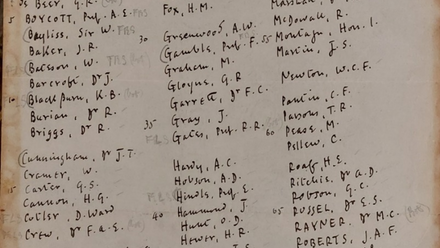 de Beer, G. R.
5 BOYCOTT, Prof. A. E. FRS
(Bayliss, Sir W. FRS
Baker, J. R.
(Bateson, W. FRS
Barcroft, Dr J.
10 Blackburn, K. B.
Burian, Dr R.
Briggs, Dr R.
(Cunningham, Dr J. T.
Cramer, W.
15 Carter, G. S.
Cannon, H. G.
Cutler, D. Ward
Crew, Dr F. A. E.
Fox, H. M.
30 Greenwood, A. W.
(Gamble, Prof F.
Graham, M.
Gloyne, G. R
Garrett, Dr F. C.
35 Gray, J.
Gates, Prof. R. R.
Hardy, A. C.
Hobson, A. D.
(Hindle, Prof. E.
40 Hammond, J.
Hunt, O. D.
Hewer, H. R.
McDowall, R.
55 Montagu, Hon. I.
Martin, J. S.
Newton, W. C. F.
Pantin, C. F.
Parsons, T. R.
60 Pease, M.
Pellew, C.
Roaf, H. E.
Ritchie, Dr A. D.
Robson, G. C.
65 RUSSEL, Dr E. S.
RAYNER, Dr M. C.
ROBERTS, J. A. F.